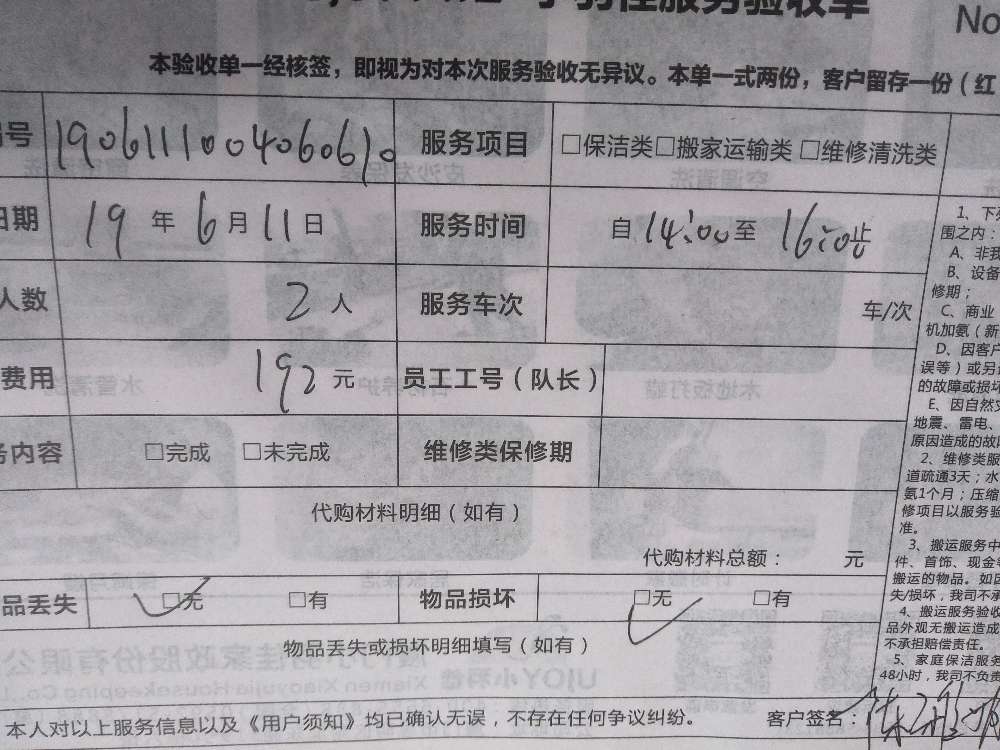 服务验收单
No
本验收单一经核签，即视为对本次服务验收无异议。本单一式两份，客户留存一份（红
号 190611100406061 服务项目 □保洁类□搬家运输类 □维修清洗类
日期 19 年 6 月 11 日 服务时间 自 14:00 至 16:00 止
人数 2 人 服务车次 车/次
费用 192 元 员工工号（队长）
务内容 □完成 □未完成 维修类保修期
代购材料明细（如有）
代购材料总额： 元
品丢失 □无 □有 物品损坏 □无 □有
物品丢失或损坏明细填写（如有）
本人对以上服务信息以及《用户须知》均已确认无误，不存在任何争议纠纷。 客户签名：
1、下
围之内：
A、非我
B、设备
修期；
C、商业
机加氨（新
D、因客户
误等）或另
的故障或损坏
E、因自然灾
地震、雷电、
原因造成的故
2、维修类服
道疏通3天；水
氨1个月；压缩
修项目以服务验
准。
3、搬运服务中
件、首饰、现金
搬运的物品。如因
失/损坏，我司不承
4、搬运服务验收
品外观无搬运造成
不承担赔偿责任。
5、家庭保洁服务
48小时，我司不负责